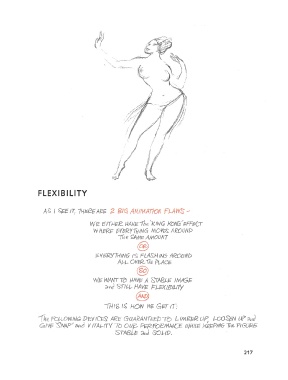 FLEXIBILITY
AS I SEE IT, THERE ARE 2 BIG ANIMATION FLAWS –
WE EITHER HAVE THE 'KING KONG' EFFECT
WHERE EVERYTHING MOVES AROUND
THE SAME AMOUNT
OR
EVERYTHING IS FLASHING AROUND
ALL OVER THE PLACE
SO
WE WANT TO HAVE A STABLE IMAGE
and STILL HAVE FLEXIBILITY
AND
THIS IS HOW WE GET IT:
THE FOLLOWING DEVICES ARE GUARANTEED TO LIMBER UP, LOOSEN UP and
GIVE 'SNAP' and VITALITY TO OUR PERFORMANCE WHILE KEEPING THE FIGURE
STABLE and SOLID.
217